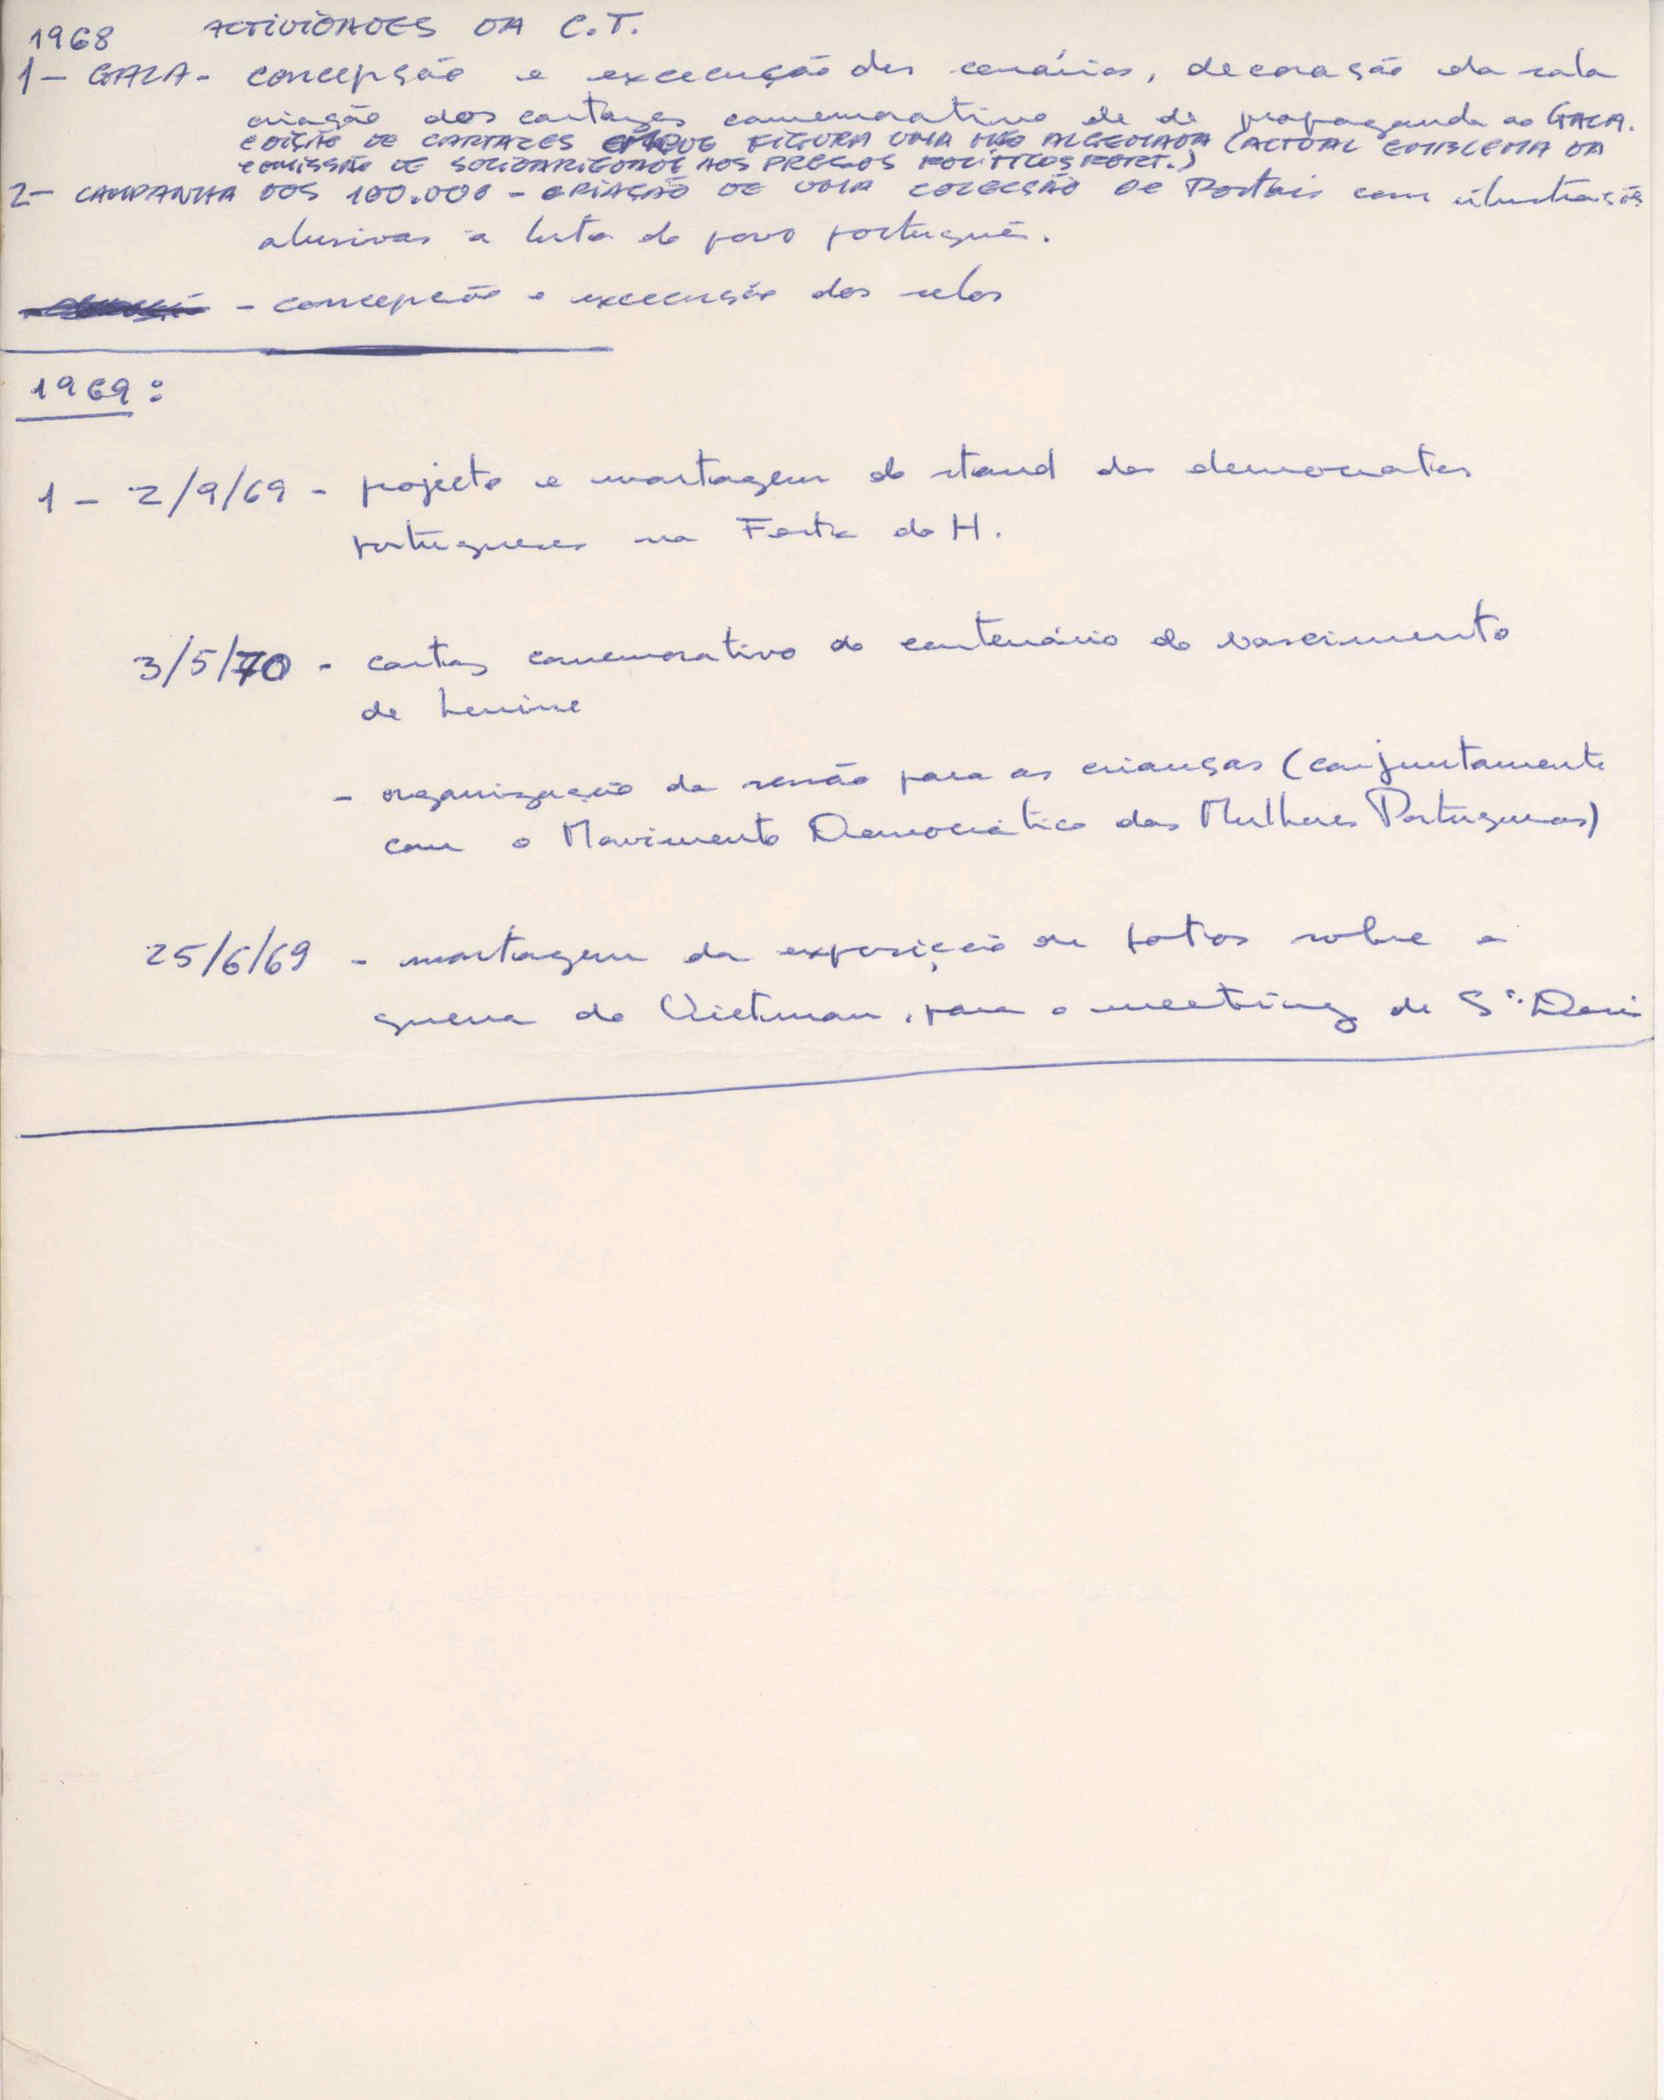 1968 ACTIVIDADES DA C.T.
1 - GALA - concepção e excecução dos cenários, decoração da sala
criação dos cartazes comemorativo de de propaganda ao GALA.
EDIÇÃO DE CARTAZES EM QUE FIGURA UMA MÃO ALGEMADA (ACTUAL EMBLEMA DA
COMISSÃO DE SOLIDARIEDADE AOS PRESOS POLÍTICOS PORT.)
2 - CAMPANHA DOS 100.000 - CRIAÇÃO DE UMA COLECÇÃO DE Postais com ilustrações
alusivas a luta do povo português.
- concepção e excecução dos selos
1969:
1 - 2/9/69 - projecto e montagem do stand dos democratas
portugueses na Festa do H.
3/5/70 - cartaz comemorativo do centenário do nascimento
de Lenine
- organização da sessão para as crianças (conjuntamente
com o Movimento Democrático das Mulheres Portuguesas)
25/6/69 - montagem da exposição de fotos sobre a
guerra do Vietnam, para o meeting de St. Denis